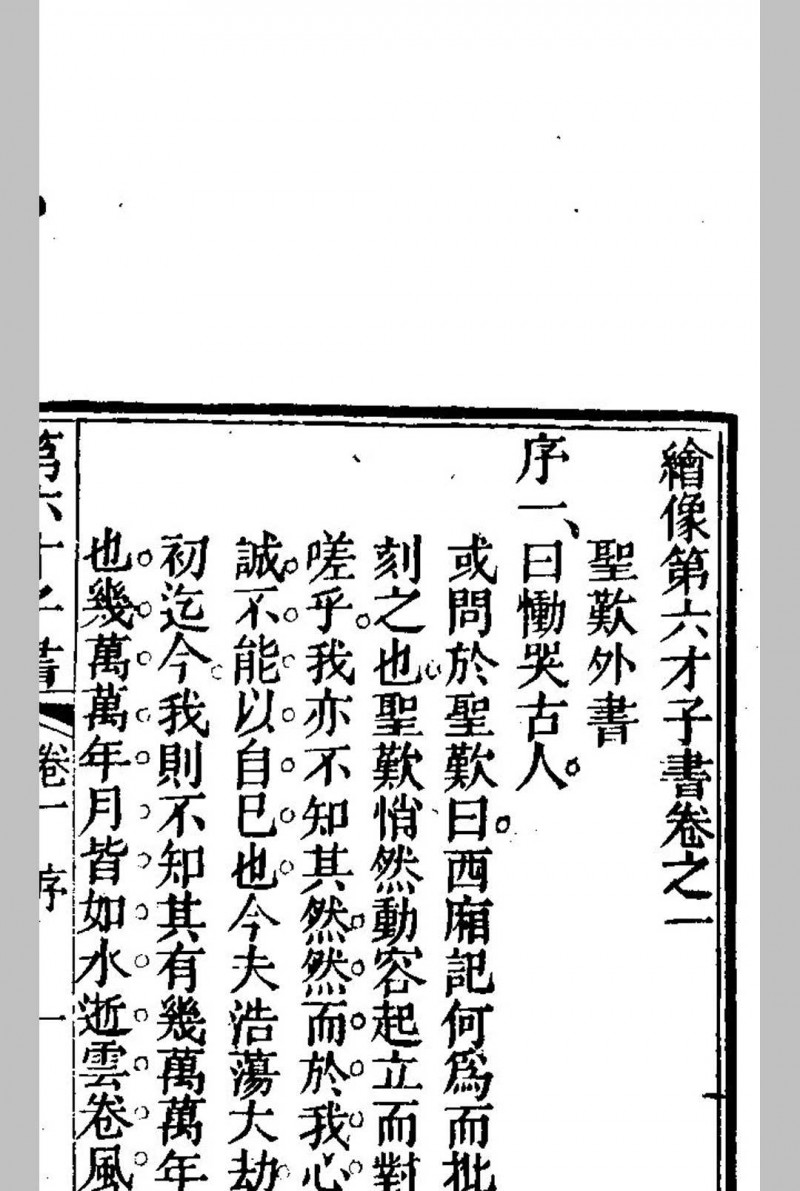 繪像第六才子書卷之一
聖歎外書
序一、曰慟哭古人
或問於聖歎曰西廂記何爲而批
刻之也聖歎悄然動容起立而對
嗟乎我亦不知其然然而於我心
誠不能以自已也今夫浩蕩大劫
初迄今我則不知其有幾萬萬年
也幾萬萬年月皆如水逝雲卷風
第六才子書 卷一 序 一